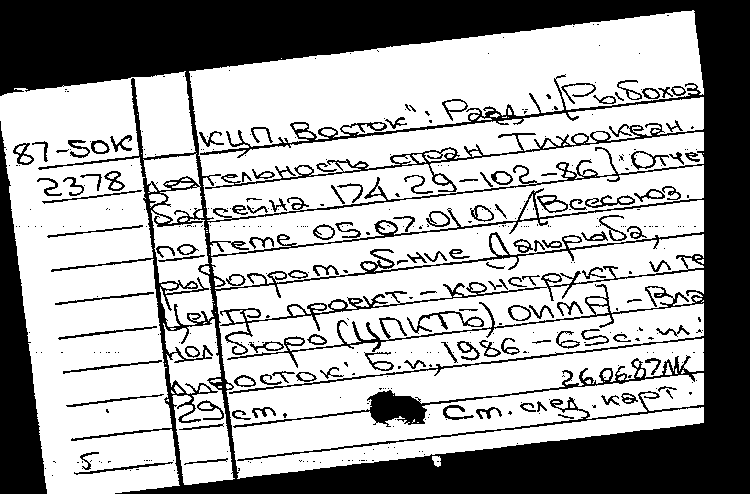 КЦП „Восток“: Разд. 1: [Рыбохоз
87-50К
деятельность стран Тихоокеан.
2378
бассейна. 174.29-102-86]: Отчет
по теме 05.07.01.01 / [Всесоюз.
рыбопром. об-ние Дальрыба,
Центр. проект.-конструкт. и те
нол. бюро (ЦПКТБ) ОИМР]. - Вла
дивосток: Б.и., 1986. - 65с.: ил.:
26.06.87
29 cm.
Cm. след. карт.
5